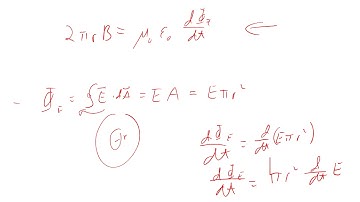 2πrB = μ₀ ε₀ dΦ_E/dt ⇐
- Φ_E = ∮ E⃗ · dA⃗ = E A = E π r²
dΦ_E/dt = d/dt (E π r²)
dΦ_E/dt = π r² d/dt E